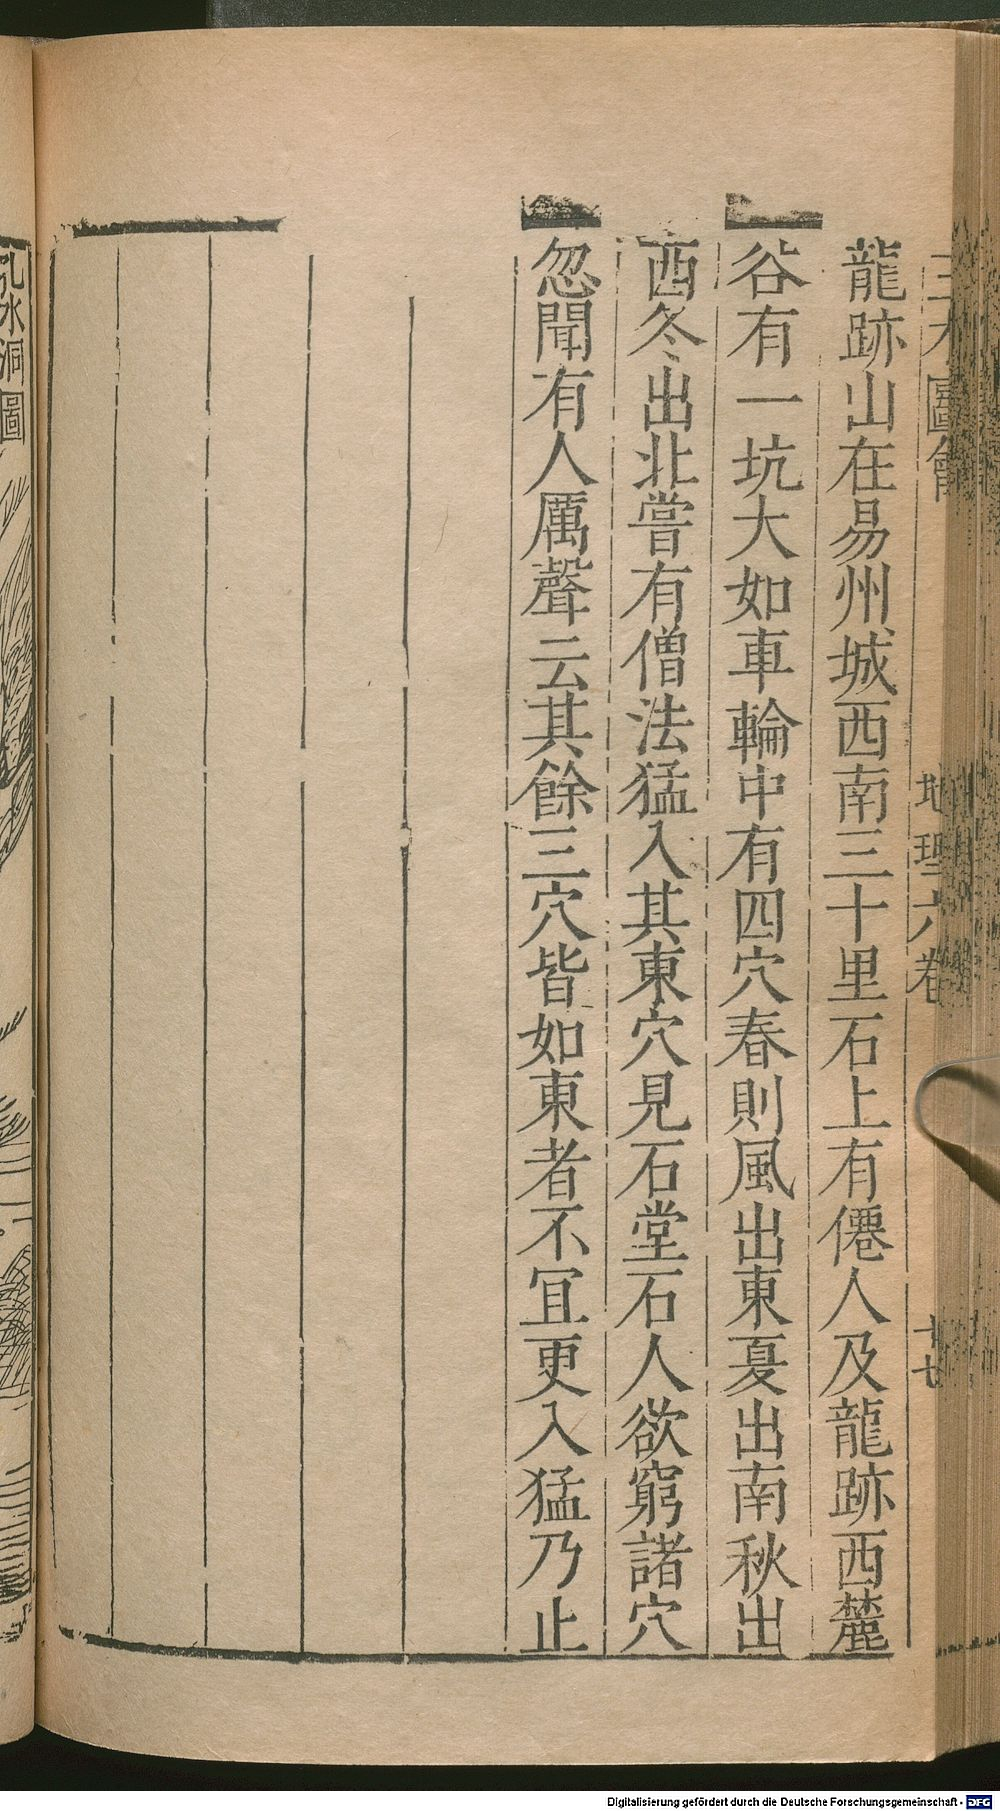 三才圖會
地理六卷
十七
龍跡山在易州城西南三十里石上有僊人及龍跡西麓
谷有一坑大如車輪中有四穴春則風出東夏出南秋出
西冬出北嘗有僧法猛入其東穴見石堂石人欲窮諸穴
忽聞有人厲聲云其餘三穴皆如東者不冝更入猛乃止
孔水洞圖
Digitalisierung gefördert durch die Deutsche Forschungsgemeinschaft - DFG